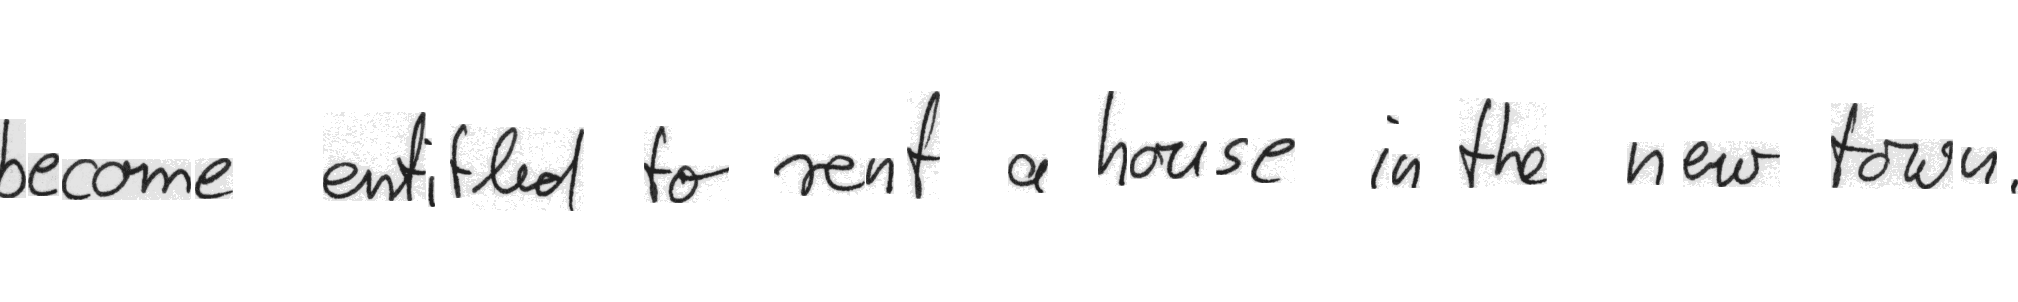 become entitled to rent a house in the new town.